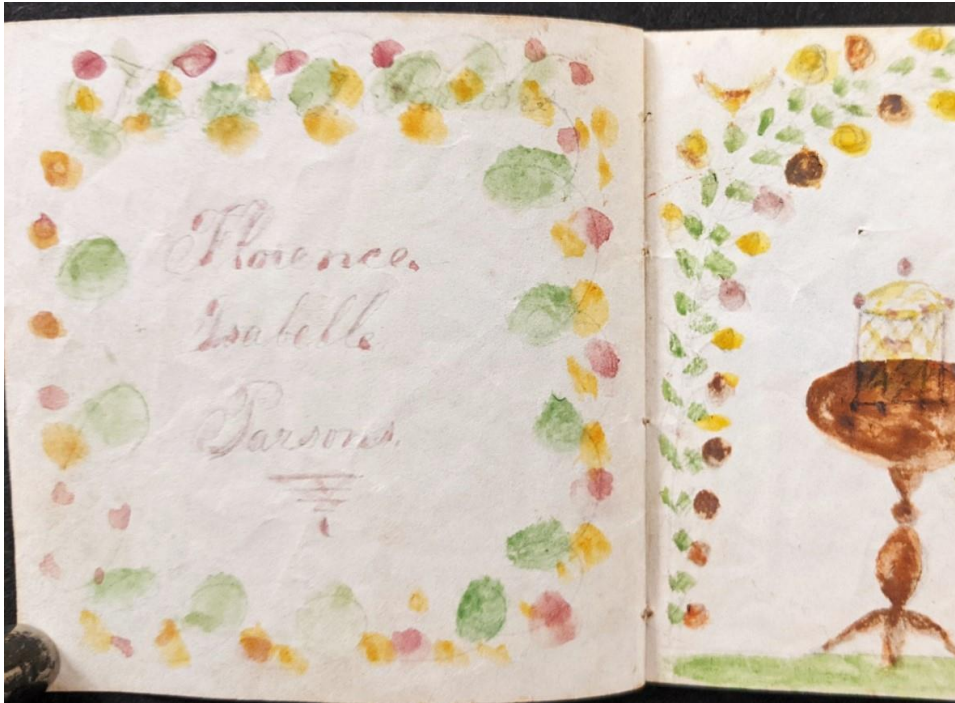 Florence.
Isabelle
Parsons.